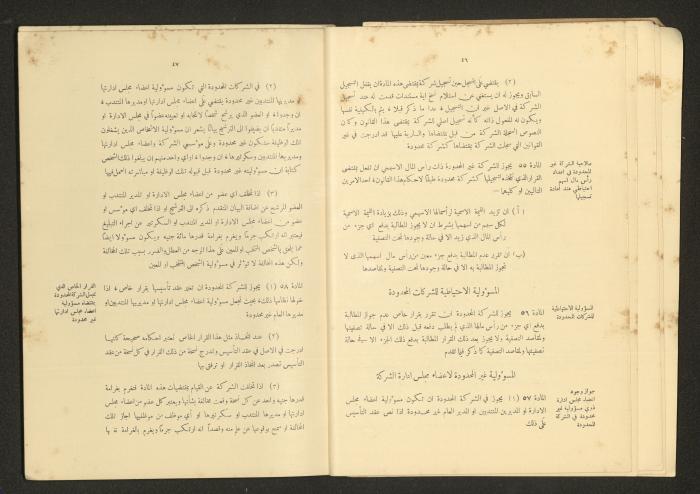 ٤٦
(٢) يقتضي على المسجل حين تسجيل شركة بمقتضى هذه المادة ان يقفل التسجيل
السابق ويجوز له ان يستغني عن استلام نسخ اية مستندات قدمت له عند تسجيل
الشركة في الاصل غير ان التسجيل فيما عدا ما ذكر قبلا يتم بالكيفية نفسها
ويكون له المفعول ذاته كأنه تسجيل اصلي للشركة بمقتضى هذا القانون وكأن
النصوص المتعلقة بالشركة من قبل بمقتضاها والسارية عليها قد ادرجت في غير
القوانين التي سجلت الشركة بمقتضاها كشركة محدودة
صلاحية الشركة غير
المحدودة في اعداد
رأس مال اسهم
احتياطي عند اعادة
تسجيلها
المادة ٥٥ يجوز للشركة غير المحدودة ذات رأس المال الاسهمي ان تفعل بمقتضى
القرار الذي تتخذه لتسجيلها كشركة محدودة طبقًا لاحكام هذا القانون احد الامرين
التاليين او كليهما —
(أ) ان تزيد القيمة الاسمية لرأسمالها الاسهمي وذلك بزيادة القيمة الاسمية
لكل سهم من اسهمها بشرط ان لا يجوز المطالبة بدفع اي جزء من
رأس المال الذي زيد الا في حالة وجودها تحت التصفية
(ب) ان تقرر عدم المطالبة بدفع جزء معين من رأس مال اسهمها الذي لا
تجوز المطالبة به الا في حالة وجودها تحت التصفية ولمقاصدها
المسؤولية الاحتياطية للشركات المحدودة
المسؤولية الاحتياطية
للشركات المحدودة
المادة ٥٦ يجوز للشركة المحدودة ان تقرر بقرار خاص عدم جواز المطالبة
بدفع اي جزء من رأس مالها الذي لم يطلب دفعه قبل ذلك الا في حالة تصفيتها
ولمقاصد التصفية ولا يجوز بعد ذلك القرار المطالبة بدفع ذلك الجزء الا في حالة
تصفيتها ولمقاصد التصفية كما ذكر فيما تقدم
المسؤولية غير المحدودة لاعضاء مجلس ادارة الشركة
جواز وجود
اعضاء مجلس ادارة
ذوي مسؤولية غير
محدودة في الشركة
المحدودة
المادة ٥٧ (١) يجوز في الشركة المحدودة ان تكون مسؤولية اعضاء مجلس
الادارة او المديرين المنتدبين او المدير العام غير محدودة اذا نص عقد التأسيس
على ذلك
٤٧
(٢) في الشركات المحدودة التي تكون مسؤولية اعضاء مجلس ادارتها
او مديريها المنتدبين غير محدودة يقتضي على اعضاء مجلس ادارتها او مديرها المنتدب
ان وجدوا والعضو الذي يرشح شخصًا لانتخابه او تعيينه عضوًا في مجلس الادارة او
مديرًا منتدبًا ان يضيفوا الى الترشيح بيانًا يشعر ان مسؤولية الاشخاص الذين يشغلون
تلك الوظيفة ستكون غير محدودة وعلى مؤسسي الشركة واعضاء مجلس ادارتها
ومديريها المنتدبين وسكرتيرها ان وجدوا او اي واحد منهم ان يبلغوا ذلك الشخص
كتابة ان مسؤوليته غير محدودة قبل قبوله تلك الوظيفة او مباشرته العمل فيها
(٣) اذا تخلف اي عضو من اعضاء مجلس الادارة او المدير المنتدب او
العضو المرشح عن اضافة البيان المتقدم ذكره الى الترشيح او اذا تخلف اي مؤسس او
عضو من اعضاء مجلس الادارة او المدير المنتدب او السكرتير عن اجراء التبليغ
فيعتبر انه ارتكب جرمًا ويغرم بغرامة قدرها مائة جنيه ويكون مسؤولا ايضًا
عما يلحق بالشخص المنتخب او المعين على هذا الوجه من العطل والضرر بسبب تلك المخالفة
ولكن هذه المخالفة لا تؤثر في مسؤولية الشخص المنتخب او المعين
القرار الخاص الذي
يجعل الشركة المحدودة
بمقتضاه مسؤولية
اعضاء مجلس ادارتها
غير محدودة
المادة ٥٨ (١) يجوز للشركة المحدودة ان تغير عقد تأسيسها بقرار خاص اذا
خولها نظامها ذلك بحيث تجعل مسؤولية اعضاء مجلس ادارتها او مديريها المنتدبين او
مديرها العام غير محدودة
(٢) عند اتخاذ مثل هذا القرار الخاص تعتبر احكامه صحيحة كأنها
ادرجت في الاصل في عقد التأسيس وتدرج نسخة من ذلك القرار في كل نسخة من عقد
التأسيس تصدر بعد اتخاذ القرار او ترفق بها
(٣) اذا تخلفت الشركة عن القيام بمقتضيات هذه المادة فتغرم بغرامة
قدرها جنيه واحد عن كل نسخة وقعت مخالفة بشأنها ويعتبر كل عضو من اعضاء مجلس
ادارتها او مديرها المنتدب او سكرتيرها او أي موظف من موظفيها اجاز تلك
المخالفة او سمح بوقوعها عن علم منه وقصد انه ارتكب جرمًا ويغرم بالغرامة